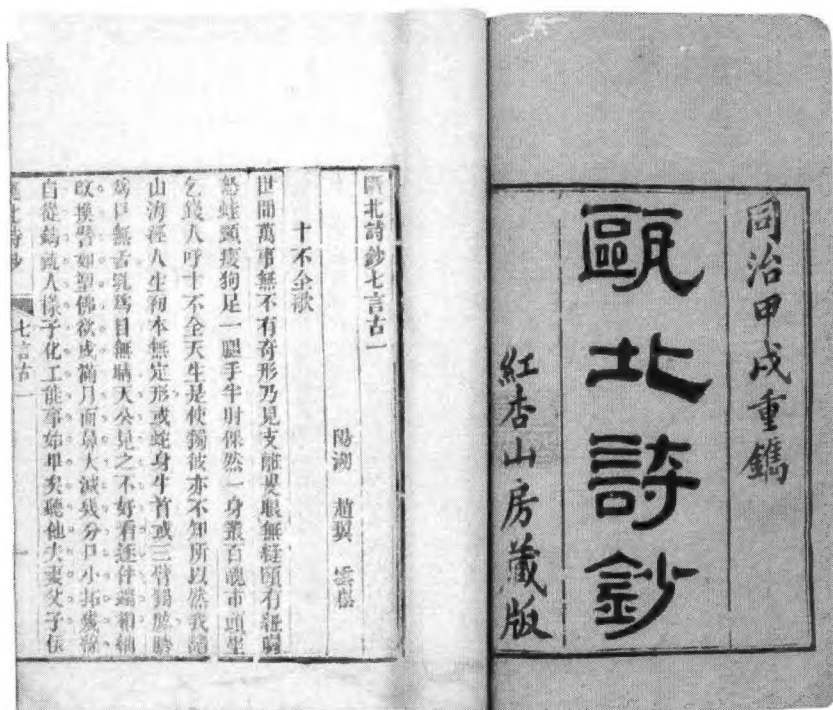 同治甲戌重鐫
甌北詩鈔
紅杏山房藏版
甌北詩鈔七言古一
陽湖 趙翼 雲崧
十不全歌
世間萬事無不有奇形乃見支離叟眼無縫頤有
蛙頭瘦狗足一腿手半肘倮然一身叢百醜市頭坐
乞錢人呼十不全天生是使獨彼亦不知所以然我讀
山海經人生初本無定形或蛇身牛首或三臂獨
爲口無舌乳爲目無睛天公見之不好看逐件端相細
改換譬如塑佛欲成滿月面鼻大減幾分口小拓幾線
自從鑄就人樣子化工能事始畢矣聽他夫妻父子
甌北詩鈔
七言古一
一